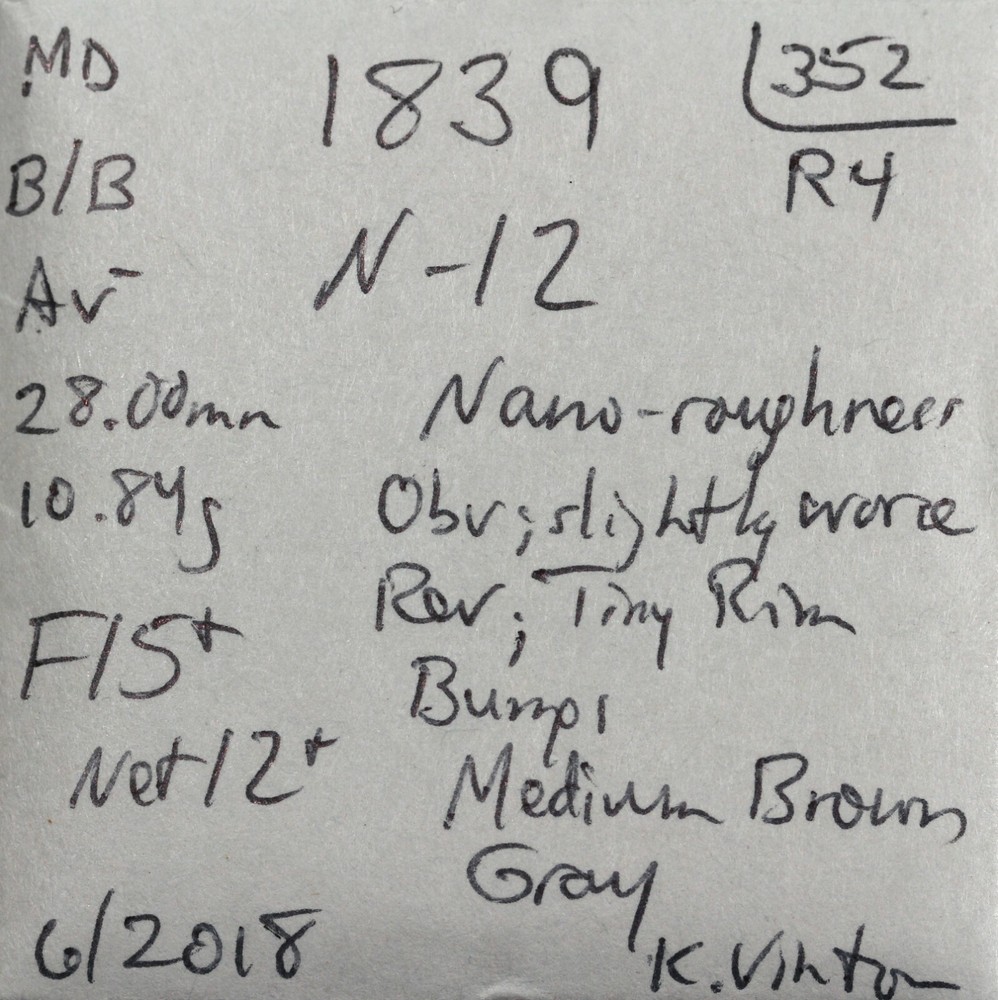 MD 1839 352
B/B N-12 R4
Av-
28.00mm Nano-roughness
10.84g Obv; slightly worse
Rev; Tiny Rim
F15+ Bumps
Net 12+ Medium Brown
Gray
6/2018 K. Vinton